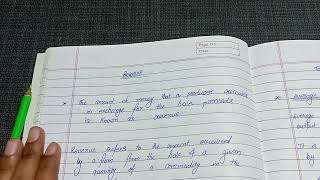 Page No.
Date
Revenue
* The amount of money that a producer receives
in exchange for the sales proceeds
is known as revenue.
Revenue refers to the amount received
by a firm from the sale of a given
quantity of a commodity in the
* Average
Average
output
It
by